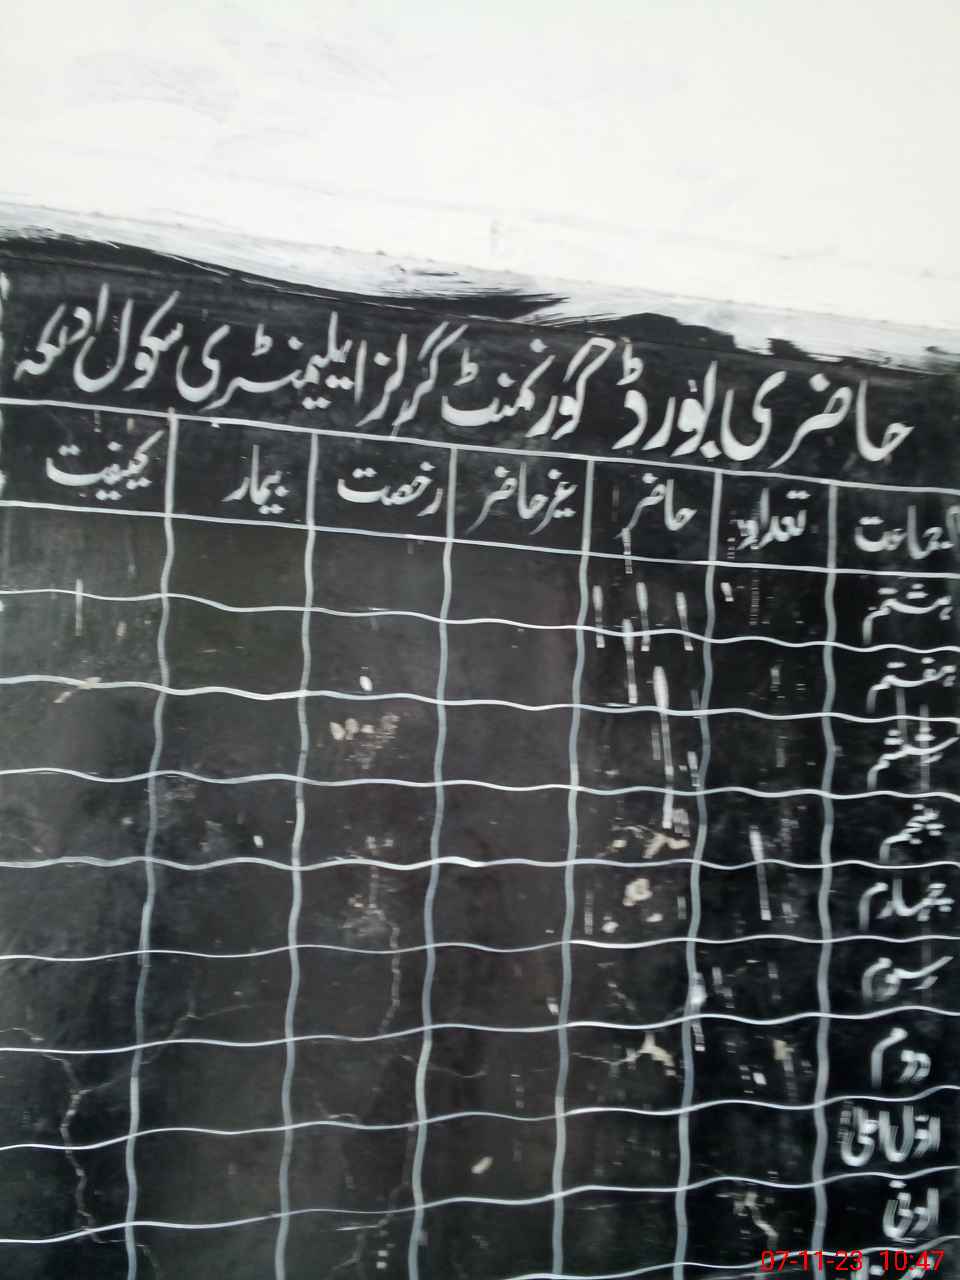 حاضری بورڈ گورنمنٹ گرلز ایلیمنٹری سکول ادلکہ
جماعت تعداد حاضر غیر حاضر رخصت بیمار کیفیت
ہشتم
ہفتم
ششم
پنجم
چہارم
سوم
دوم
اوّل اعلیٰ
ادنیٰ
07-11-23 10:47